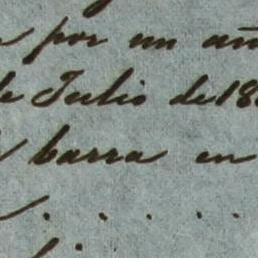 por un
de Julio de 18
barra en